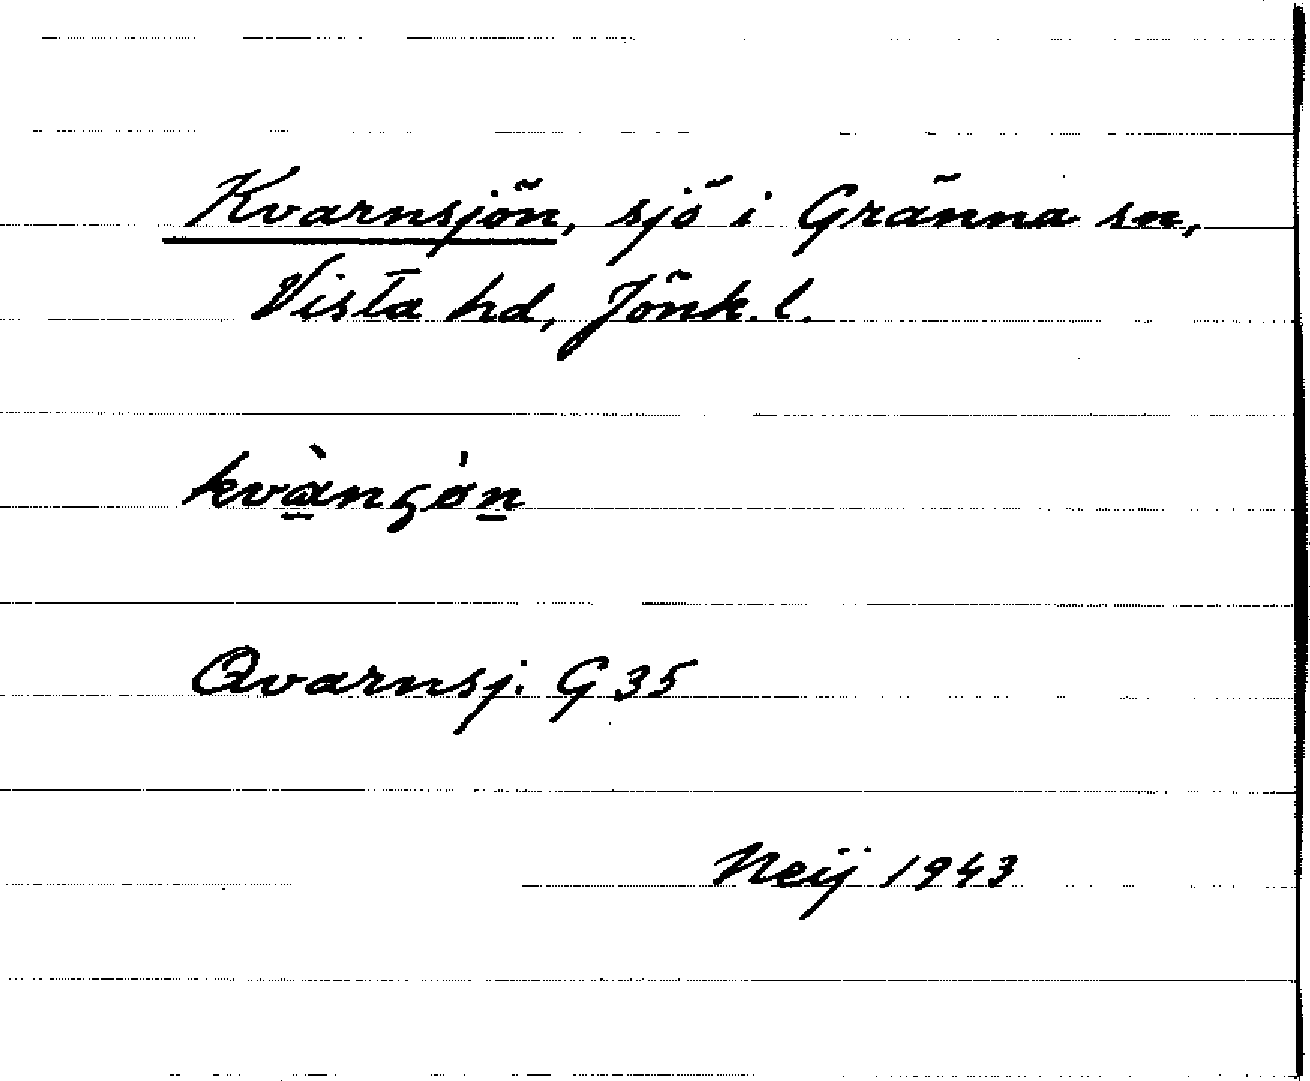 Kvarnsjön, sjö i Gränna sn,
Vista hd, Jönk. l.
kvàngön
Qvarnsj. G 35
Neij 1943